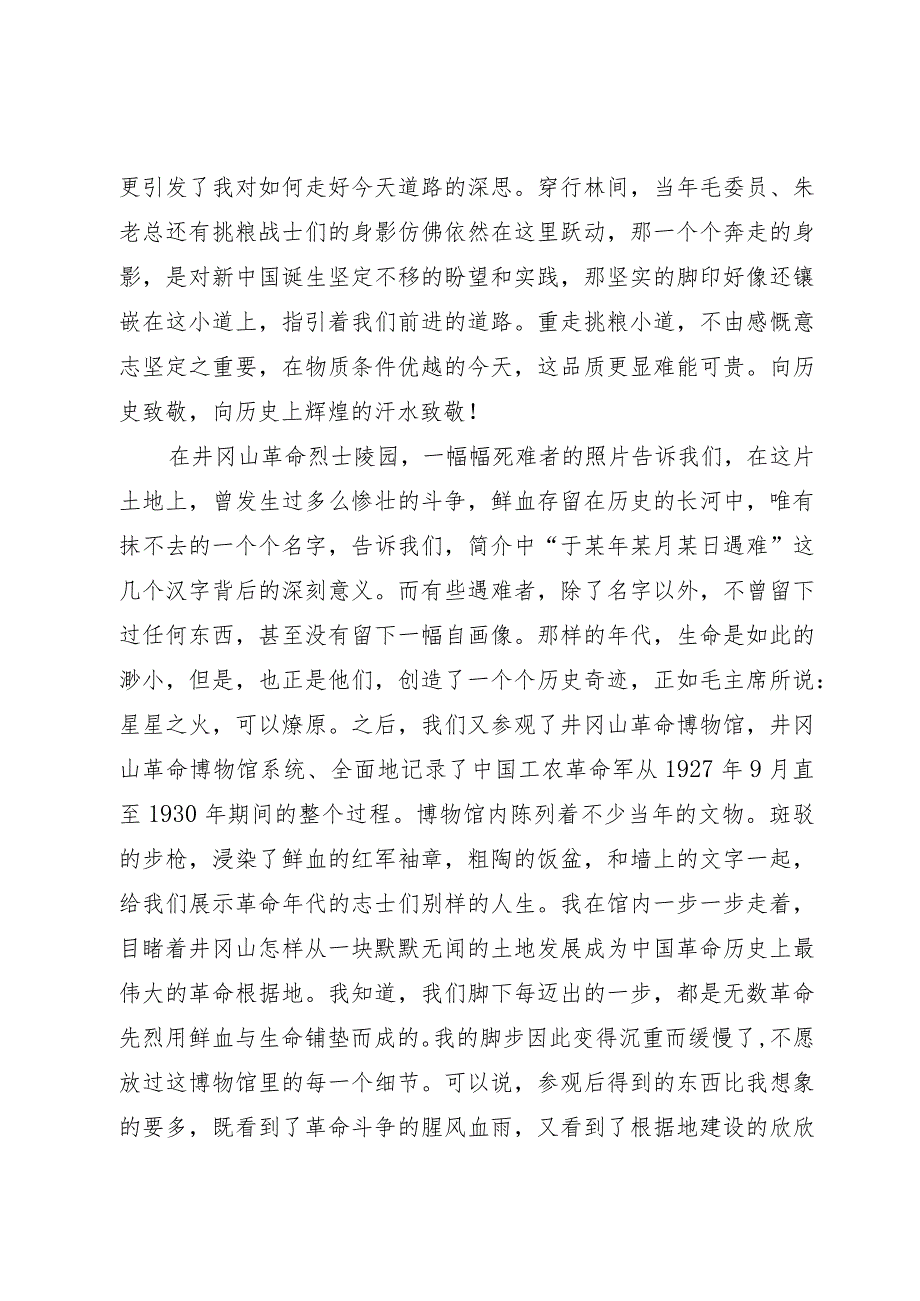 更引发了我对如何走好今天道路的深思。穿行林间，当年毛委员、朱
老总还有挑粮战士们的身影仿佛依然在这里跃动，那一个个奔走的身
影，是对新中国诞生坚定不移的盼望和实践，那坚实的脚印好像还镶
嵌在这小道上，指引着我们前进的道路。重走挑粮小道，不由感慨意
志坚定之重要，在物质条件优越的今天，这品质更显难能可贵。向历
史致敬，向历史上辉煌的汗水致敬！
在井冈山革命烈士陵园，一幅幅死难者的照片告诉我们，在这片
土地上，曾发生过多么惨壮的斗争，鲜血存留在历史的长河中，唯有
抹不去的一个个名字，告诉我们，简介中“于某年某月某日遇难”这
几个汉字背后的深刻意义。而有些遇难者，除了名字以外，不曾留下
过任何东西，甚至没有留下一幅自画像。那样的年代，生命是如此的
渺小，但是，也正是他们，创造了一个个历史奇迹，正如毛主席所说：
星星之火，可以燎原。之后，我们又参观了井冈山革命博物馆，井冈
山革命博物馆系统、全面地记录了中国工农革命军从 1927 年 9 月直
至 1930 年期间的整个过程。博物馆内陈列着不少当年的文物。斑驳
的步枪，浸染了鲜血的红军袖章，粗陶的饭盆，和墙上的文字一起，
给我们展示革命年代的志士们别样的人生。我在馆内一步一步走着，
目睹着井冈山怎样从一块默默无闻的土地发展成为中国革命历史上最
伟大的革命根据地。我知道，我们脚下每迈出的一步，都是无数革命
先烈用鲜血与生命铺垫而成的。我的脚步因此变得沉重而缓慢了,不愿
放过这博物馆里的每一个细节。可以说，参观后得到的东西比我想象
的要多，既看到了革命斗争的腥风血雨，又看到了根据地建设的欣欣